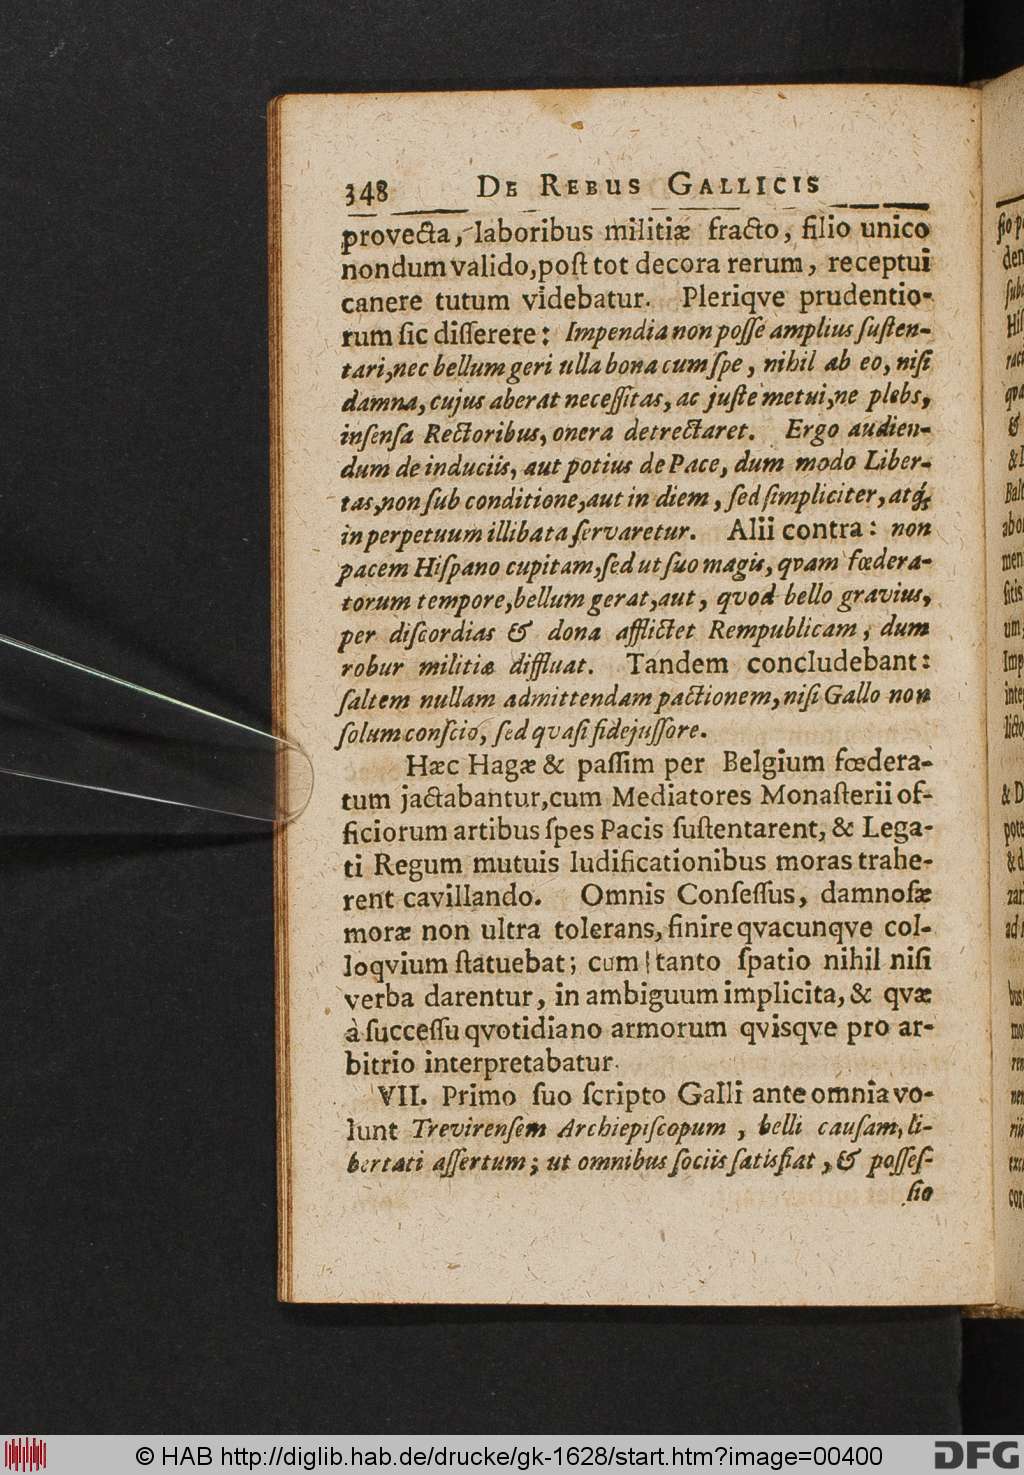 348 DE REBUS GALLICIS
provecta, laboribus militiæ fracto, filio unico
nondum valido, poſt tot decora rerum, receptui
canere tutum videbatur. Pleriqve prudentio-
rum ſic diſſerere: Impendia non poſſe amplius ſuſten-
tari, nec bellum geri ulla bona cum ſpe, nihil ab eo, niſi
damna, cujus aberat neceſſitas, ac juſtè metui, ne plebs,
infenſa Rectoribus, onera detrectaret. Ergo audien-
dum de induciis, aut potius de Pace, dum modo Liber-
tas, non ſub conditione, aut in diem, ſed ſimpliciter, atq́;
in perpetuum illibata ſervaretur. Alii contra: non
pacem Hiſpano cupitam, ſed ut ſuo magis, qvam fœdera-
torum tempore, bellum gerat, aut, qvod bello gravius,
per diſcordias & dona afflictet Rempublicam, dum
robur militiæ diffluat. Tandem concludebant:
ſaltem nullam admittendam pactionem, niſi Gallo non
ſolum conſcio, ſed qvaſi fidejuſſore.
Hæc Hagæ & paſſim per Belgium fœdera-
tum jactabantur, cum Mediatores Monaſterii of-
ficiorum artibus ſpes Pacis ſuſtentarent, & Lega-
ti Regum mutuis ludificationibus moras trahe-
rent cavillando. Omnis Conſeſſus, damnoſæ
moræ non ultra tolerans, finire qvacunqve col-
loqvium ſtatuebat; cum tanto ſpatio nihil niſi
verba darentur, in ambiguum implicita, & qvæ
à ſucceſſu qvotidiano armorum qviſqve pro ar-
bitrio interpretabatur.
VII. Primo ſuo ſcripto Galli ante omnia vo-
lunt Trevirenſem Archiepiſcopum, belli cauſam, li-
bertati aſſertum; ut omnibus ſociis ſatisfiat, & poſſeſ-
ſio
© HAB http://diglib.hab.de/drucke/gk-1628/start.htm?image=00400
DFG